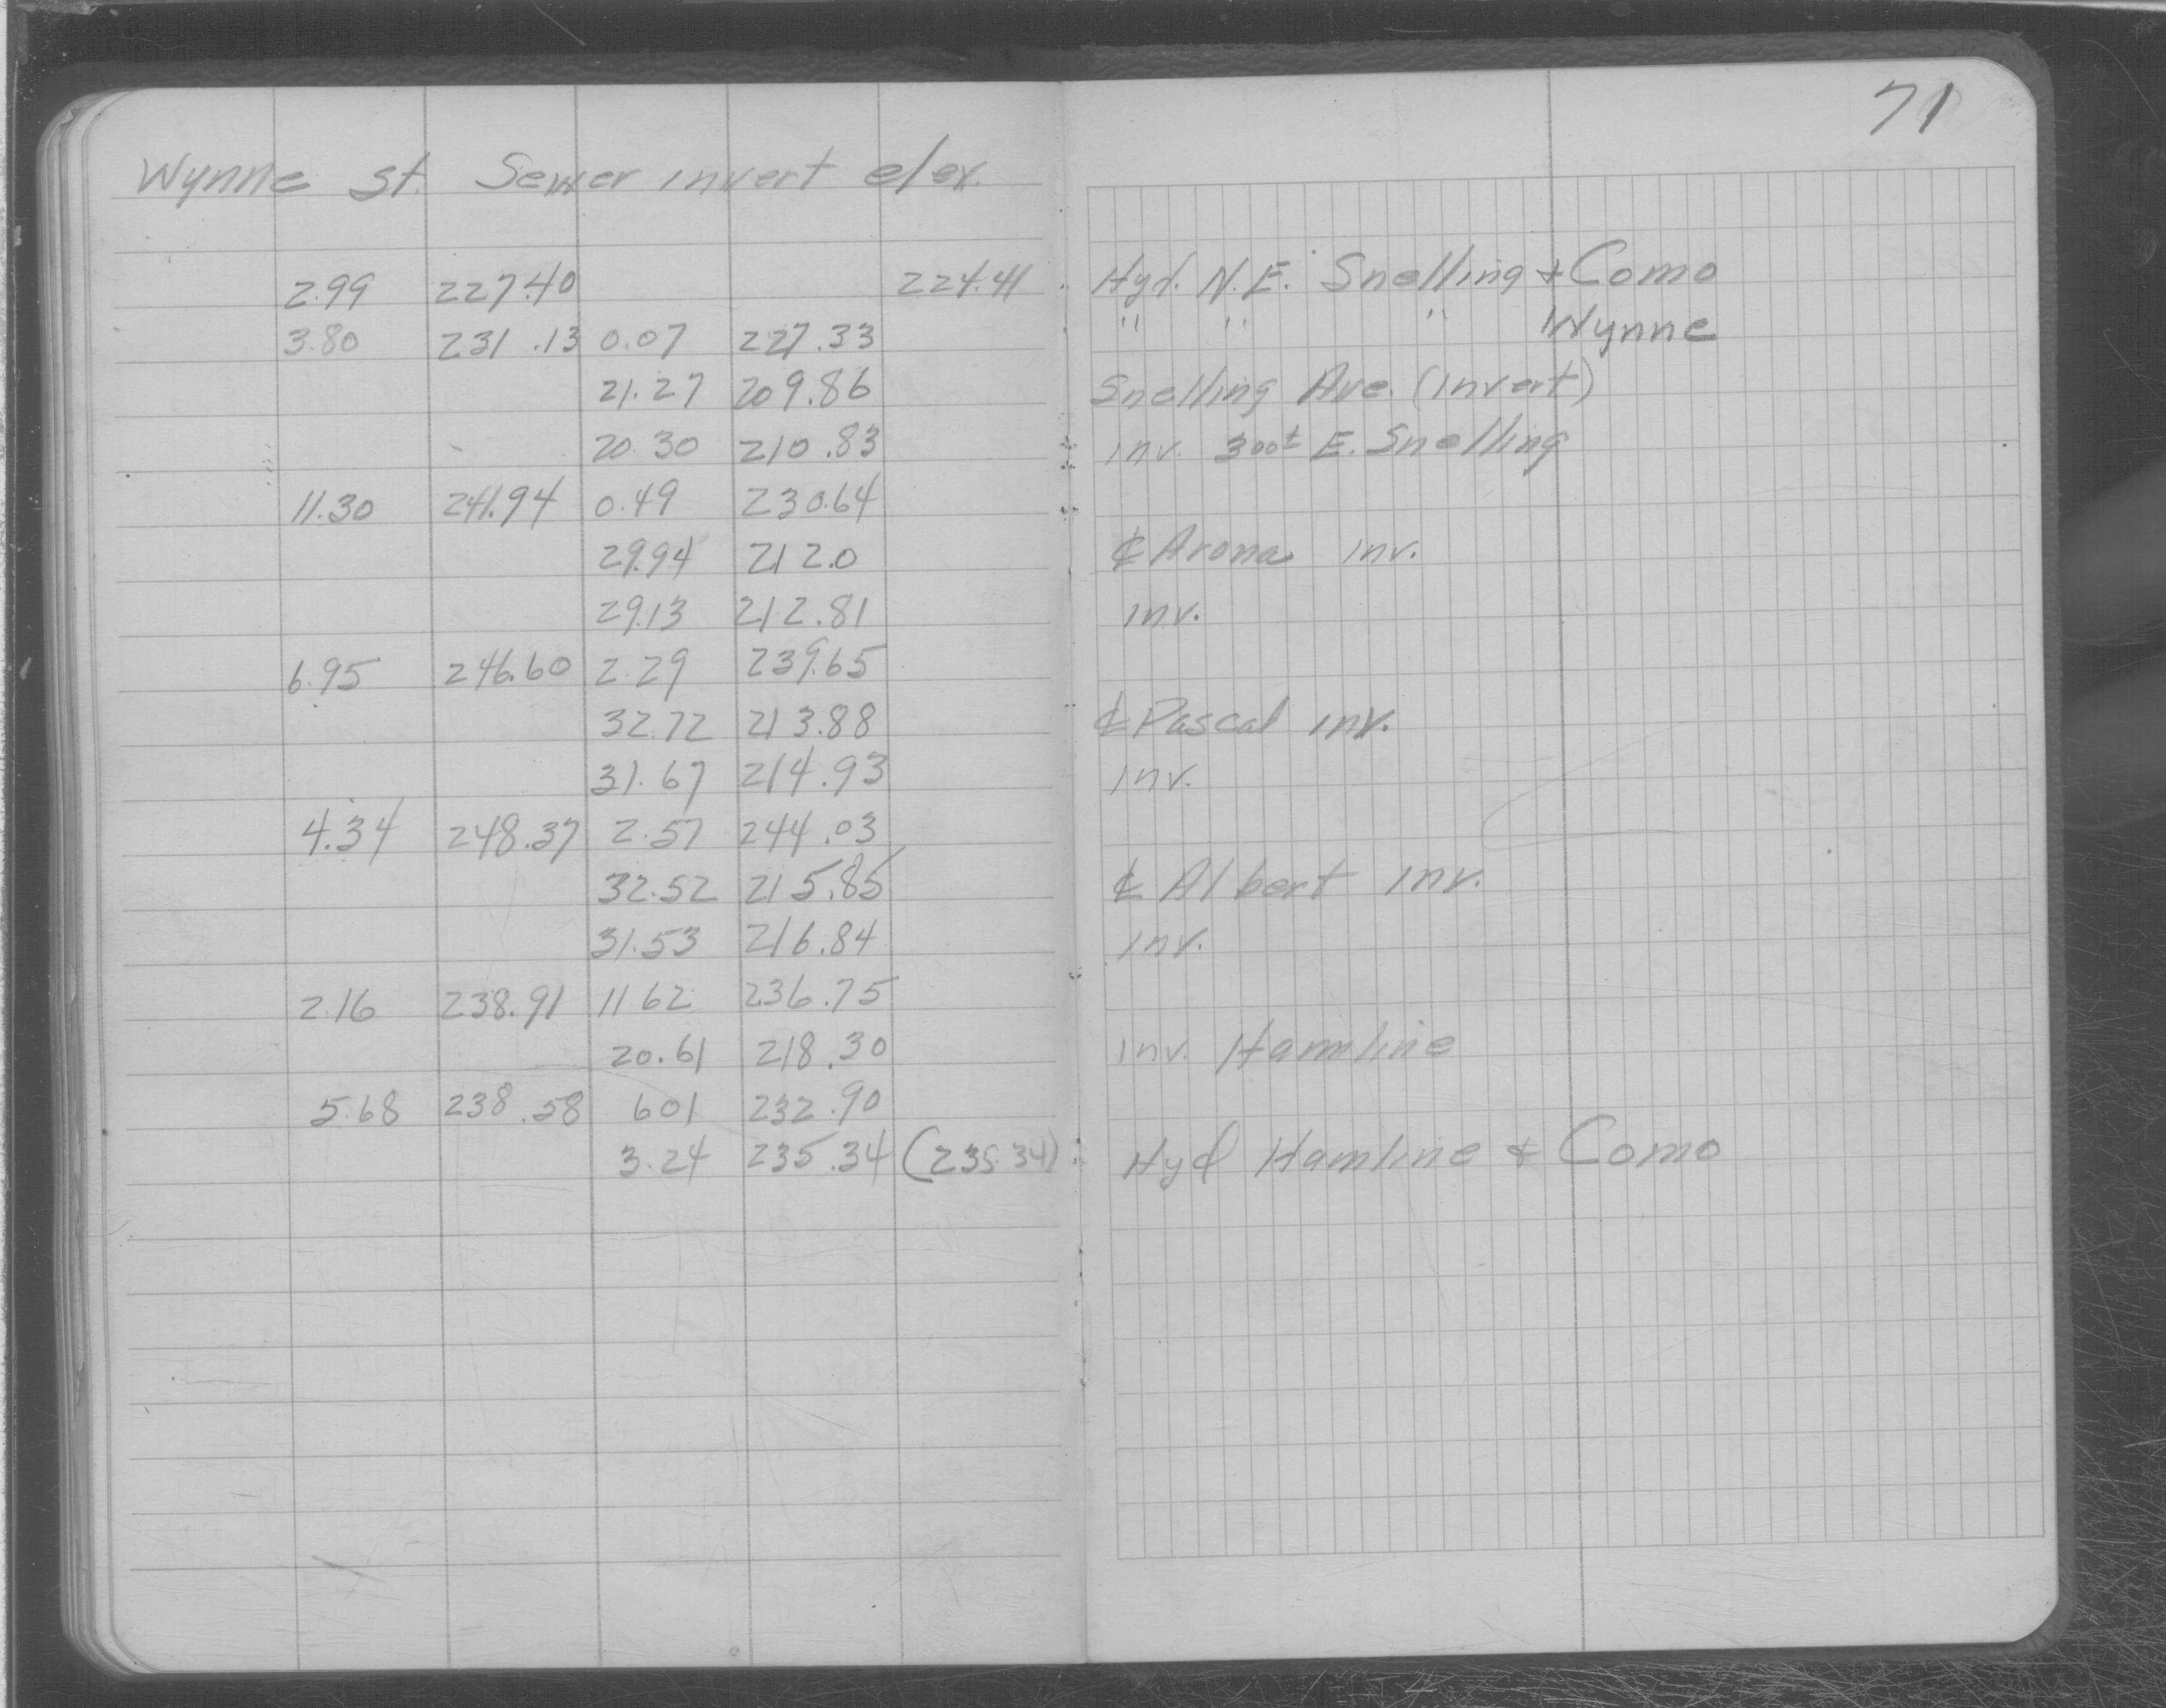 71
Wynne St. Sewer invert elev.
2.99 227.40 224.41 Hyd. N.E. Snelling + Como
3.80 231.13 0.07 227.33 " " " Wynne
21.27 209.86 Snelling Ave. (invert)
20.30 210.83 inv. 300± E. Snelling
11.30 241.94 0.49 230.64
29.94 212.0 ℄ Arona inv.
29.13 212.81 inv.
6.95 246.60 2.29 239.65
32.72 213.88 ℄ Pascal inv.
31.67 214.93 inv.
4.34 248.37 2.57 244.03
32.52 215.85 ℄ Albert inv.
31.53 216.84 inv.
2.16 238.91 11 62 236.75
20.61 218.30 inv. Hamline
5.68 238.58 601 232.90
3.24 235.34 (235.34) Hyd Hamline + Como